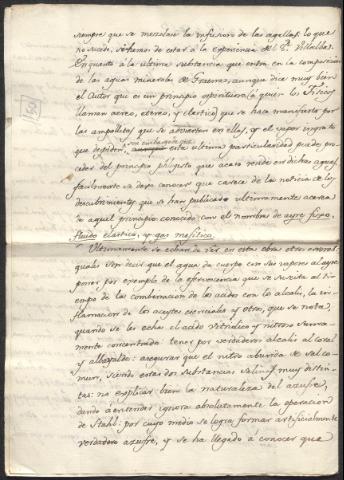 siempre que se mezclan la infusion de las agallas: lo que
no sucede, si hemos de estar á la experiencia del Sr. Villalba.
En quanto á la ultima substancia que entra en la composicion
de las aguas minerales de Graena, aunque dice muy bien
el Autor que es un principio espirituoso (á quien los Fisicos
llaman aereo, etereo, y elastico) que se hace manifiesto por
las ampollitas que se advierten en ellas, y el vapor ingrato
que despiden, sin embargo de que esta ultima particularidad puede pro-
ceder del principio phlogisto que acaso reside en dichas aguas
facilmente se dexa conocer que carece de la noticia de los
descubrimientos que se han publicado ultimamente acerca
de aquel principio conocido con el nombre de ayre fixo,
fluido elastico, y gas mefitico.
Ultimamente se echan de ver en esta obra otros errores
quales son decir que el agua da cuerpo con sus vapores al ayre
poner por exemplo de la efervescencia que se suscita al ti-
empo de la combinacion de los acidos con lo alcali, la in-
flamacion de los aceytes esenciales y otros, que se nota,
quando se les echa el acido vitriolico y nitroso suma-
mente concentrado: tener por verdaderos alcalis al coral
y albayalde: asegurar que el nitro abunda de sal co-
mun, siendo estas dos substancias salinas muy distin-
tas: no explicar bien la naturaleza del azufre,
dando á entender ignora absolutamente la operacion
de Stahl: por cuyo medio se logra formar artificialmente
verdadero azufre, y se ha llegado á conocer que